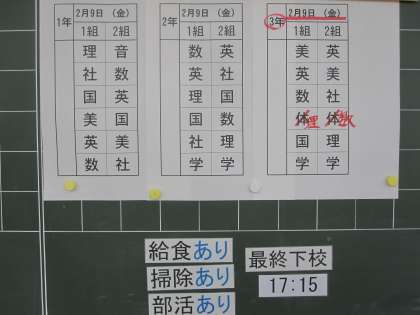 1年 2月9日 (金)
1組 2組
理 音
社 数
国 英
美 国
英 美
数 社
2年 2月9日 (金)
1組 2組
数 英
英 社
理 国
国 数
社 理
学 学
3年 2月9日 (金)
1組 2組
美 英
英 美
数 社
体 理 体 数
国 理
学 学
給食あり
掃除あり
部活あり
最終下校
17:15